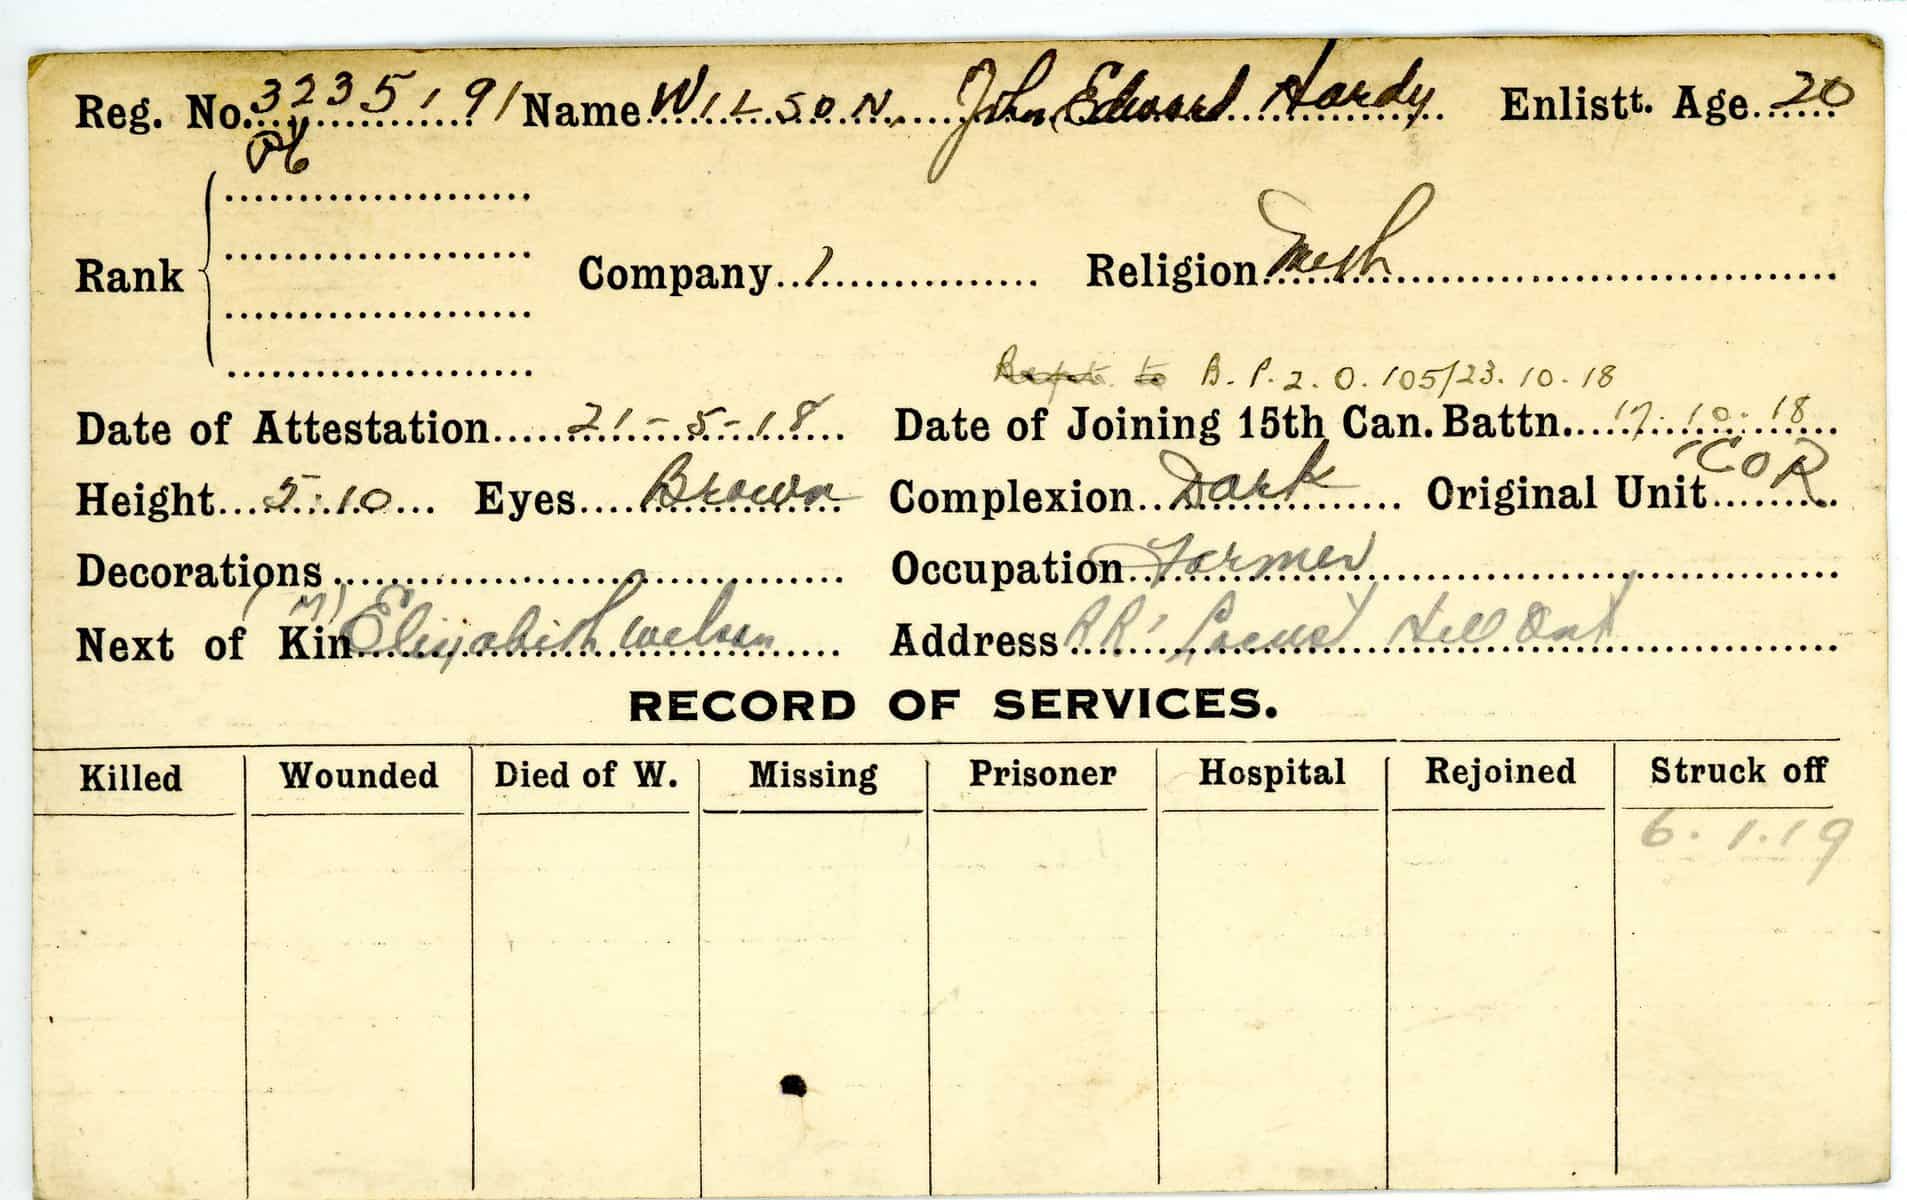 Reg. No. 3235191 Name WILSON, John Edward Hardy Enlistt. Age 20
Pte
Rank Company 1 Religion Meth
B.P.2.O.105/23.10.18
Date of Attestation 21-5-18 Date of Joining 15th Can. Battn. 17.10.18
Height 5.10 Eyes Brown Complexion Dark Original Unit COR
Decorations Occupation Farmer
Next of Kin (M) Elizabeth Wilson Address RR1 Locust Hill Ont
RECORD OF SERVICES.
Killed Wounded Died of W. Missing Prisoner Hospital Rejoined Struck off
6.1.19